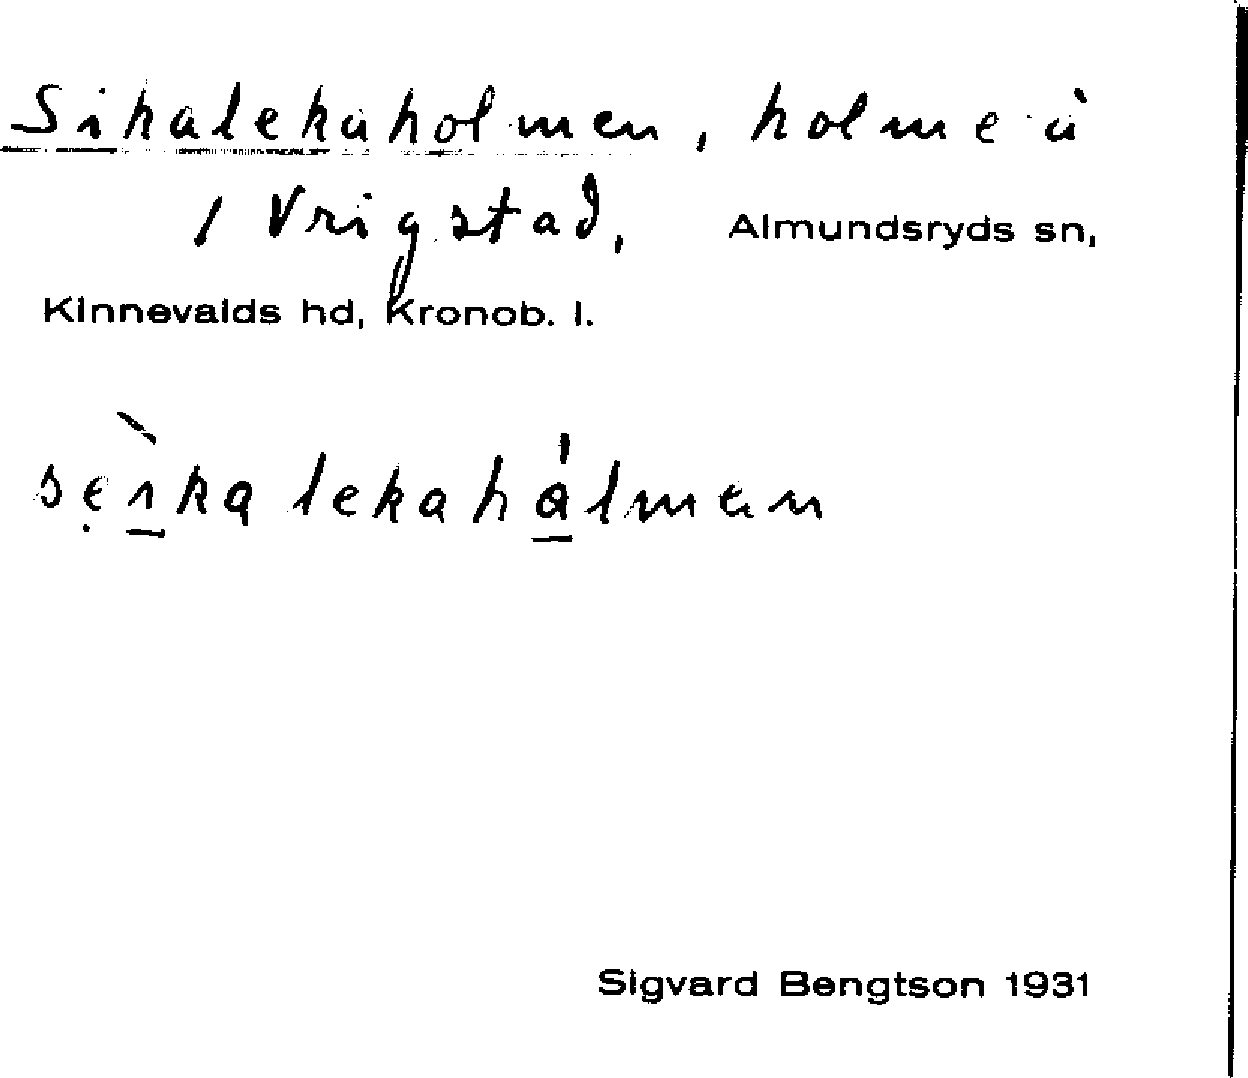 Sikalekaholmen, holme å
1 Vrigstad, Almundsryds sn,
Kinnevalds hd, Kronob. l.
sẹıka lekahålmen
Sigvard Bengtson 1931